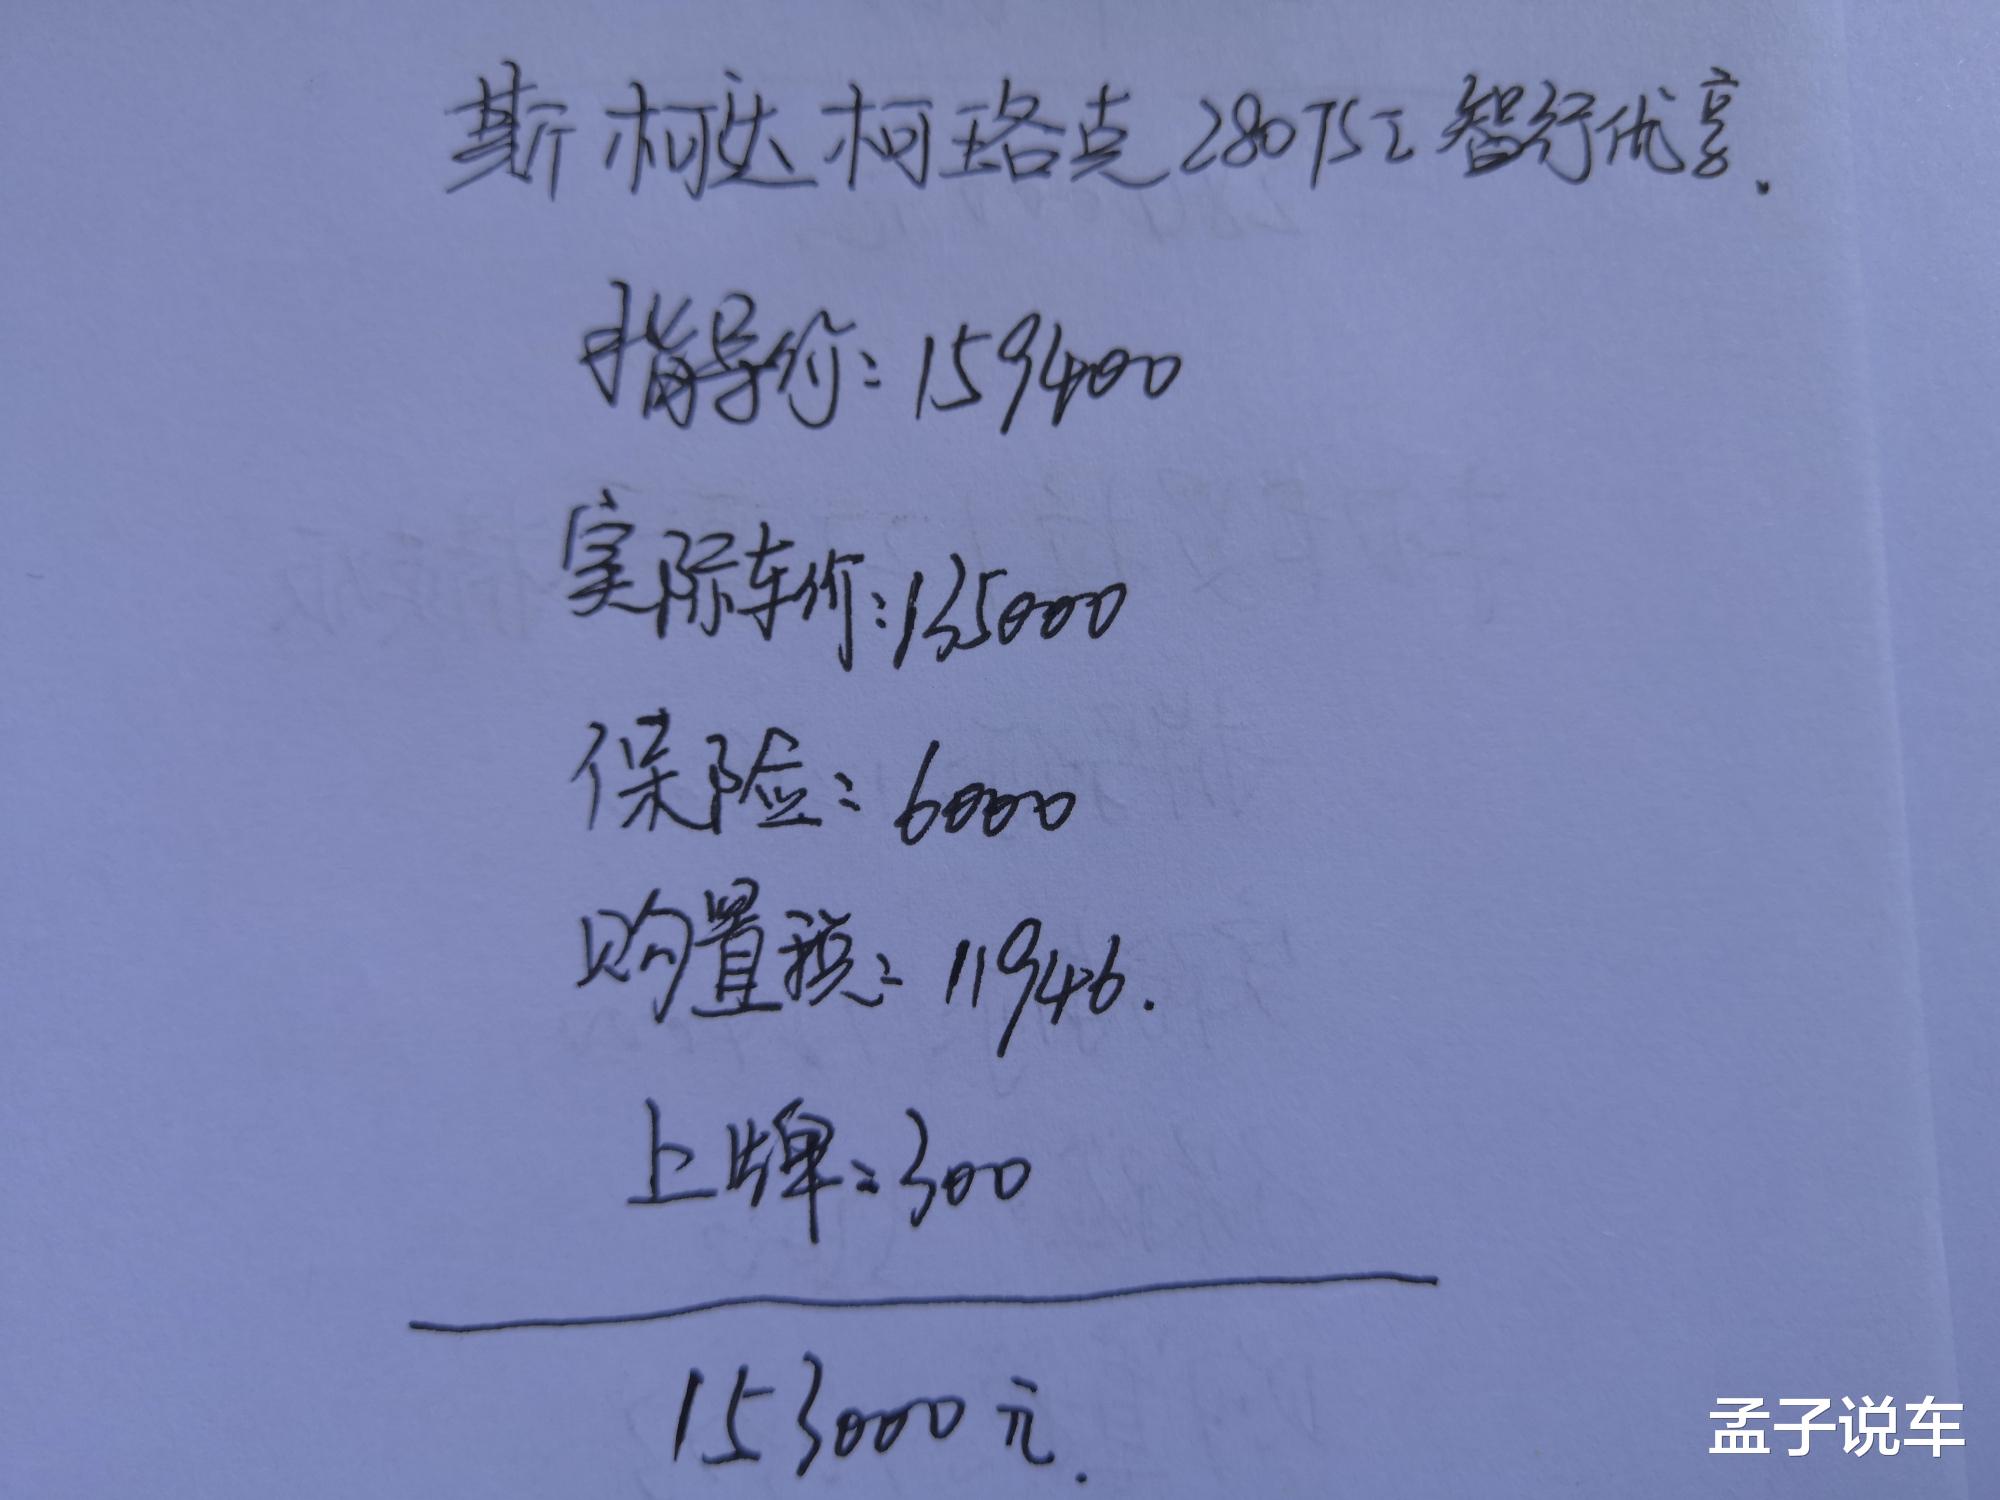 斯柯达柯珞克280TSI智行优享.
指导价:159400
实际车价:135000
保险:6000
购置税:11946.
上牌:300
153000元.
孟子说车